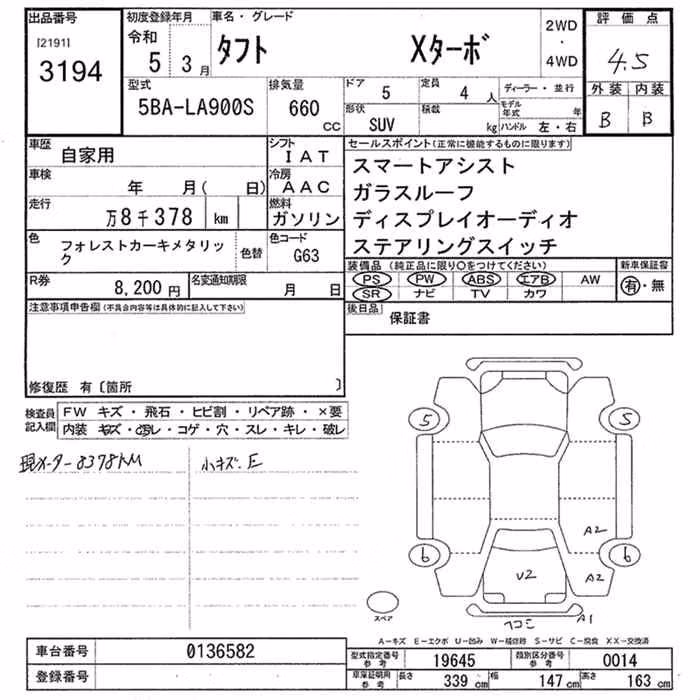 出品番号
[2191]
3194
初度登録年月
令和
5 3月
車名・グレード
タフト Xターボ
2WD
・
4WD
評価点
4.5
外装 内装
B B
型式
5BA-LA900S
排気量
660
CC
ドア 5
定員 4 人
形状 SUV
積載 kg
ディーラー・並行
モデル年式 年
ハンドル 左・右
車歴 自家用
シフト IAT
車検 年 月( 日)
冷房 AAC
走行 万8千378 km
燃料 ガソリン
色 フォレストカーキメタリック
色替
色コード G63
R券 8,200円
名変通知期限 月 日
セールスポイント(正常に機能するものに限ります)
スマートアシスト
ガラスルーフ
ディスプレイオーディオ
ステアリングスイッチ
装備品 (純正品に限り○をつけてください)
PS PW ABS エアB AW
SR ナビ TV カワ
新車保証書
有・無
後日品 保証書
注意事項申告欄(不具合内容等は具体的に記入して下さい)
修復歴 有〔箇所 〕
検査員記入欄
FW キズ・飛石・ヒビ割・リペア跡・×要
内装 キズ・汚レ・コゲ・穴・スレ・キレ・破レ
現メーター8378KM
小キズ、E
5 5
A2
6 6
U2 A2
スペア
ヘコミ A1
A-キズ E-エクボ U-凹み W-補修跡 S-サビ C-腐食 XX-交換済
車台番号 0136582
登録番号
型式指定番号 参考 19645
類別区分番号 参考 0014
車庫証明用 参考 長さ 339 cm 幅 147 cm 高さ 163 cm